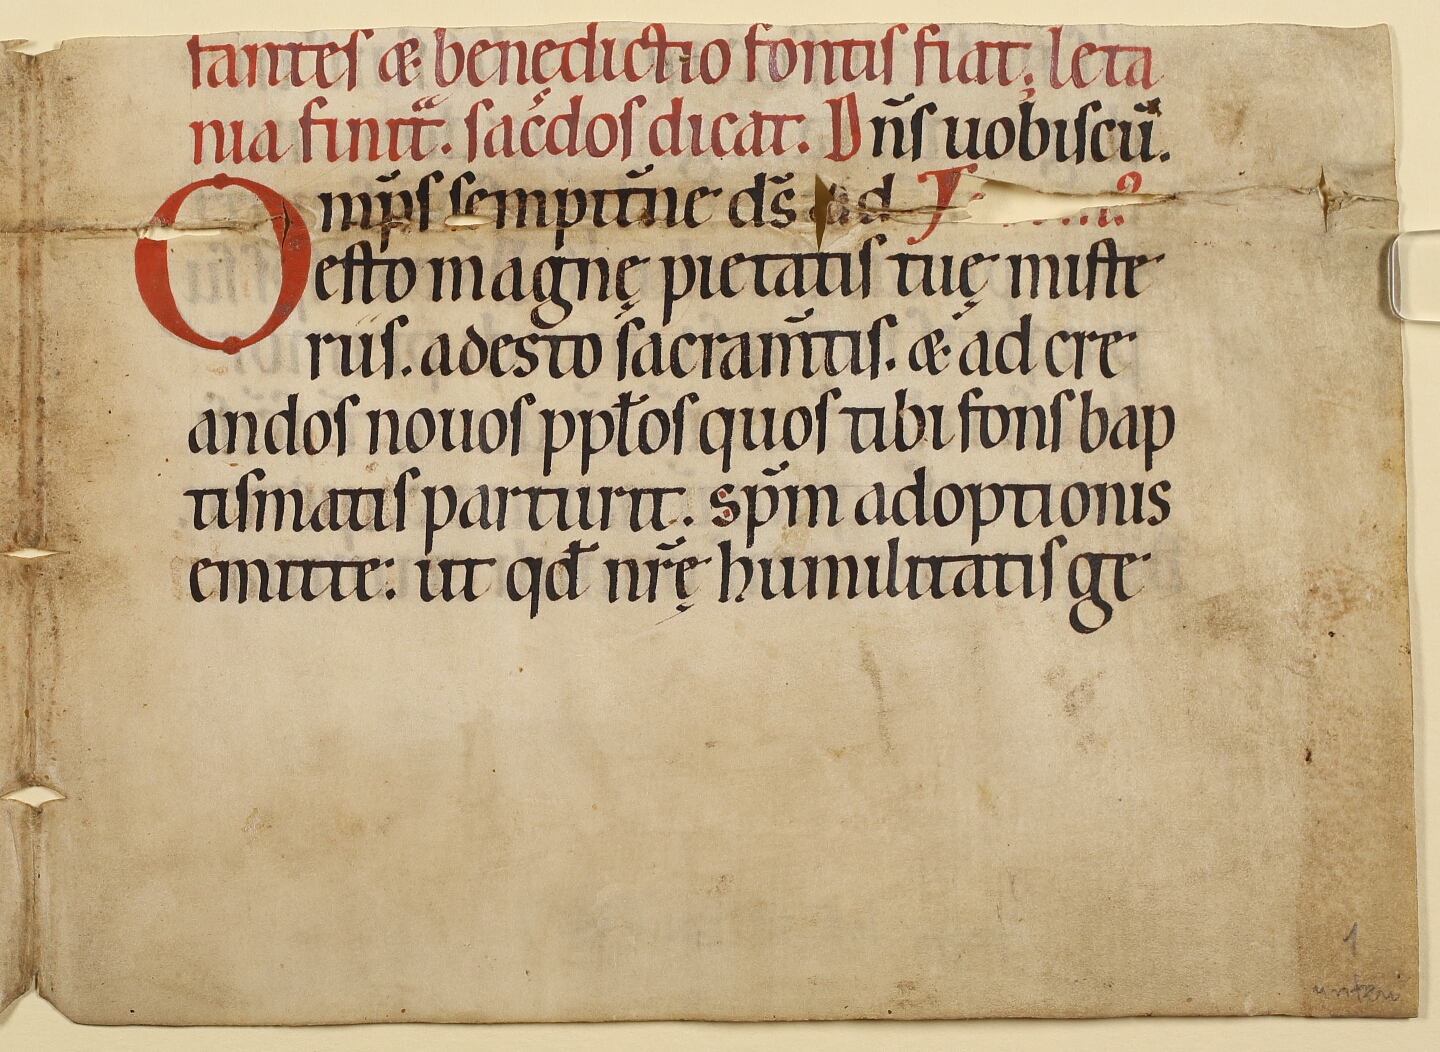 tantes & benędictio fontis fiat; leta
nia finitᷓ. sac̆dos dicat. Dn̄s uobiscū.
Omp̄s sempit̄ne ds̄ ad
esto magnę pietatis tuę miste
riis. adesto sacram̄tis. & ad cre
andos nouos pplos quos tibi fons bap
tismatis parturit. sp̄m adoptionis
emitte: ut qđ nr̄ę humilitatis ge
1